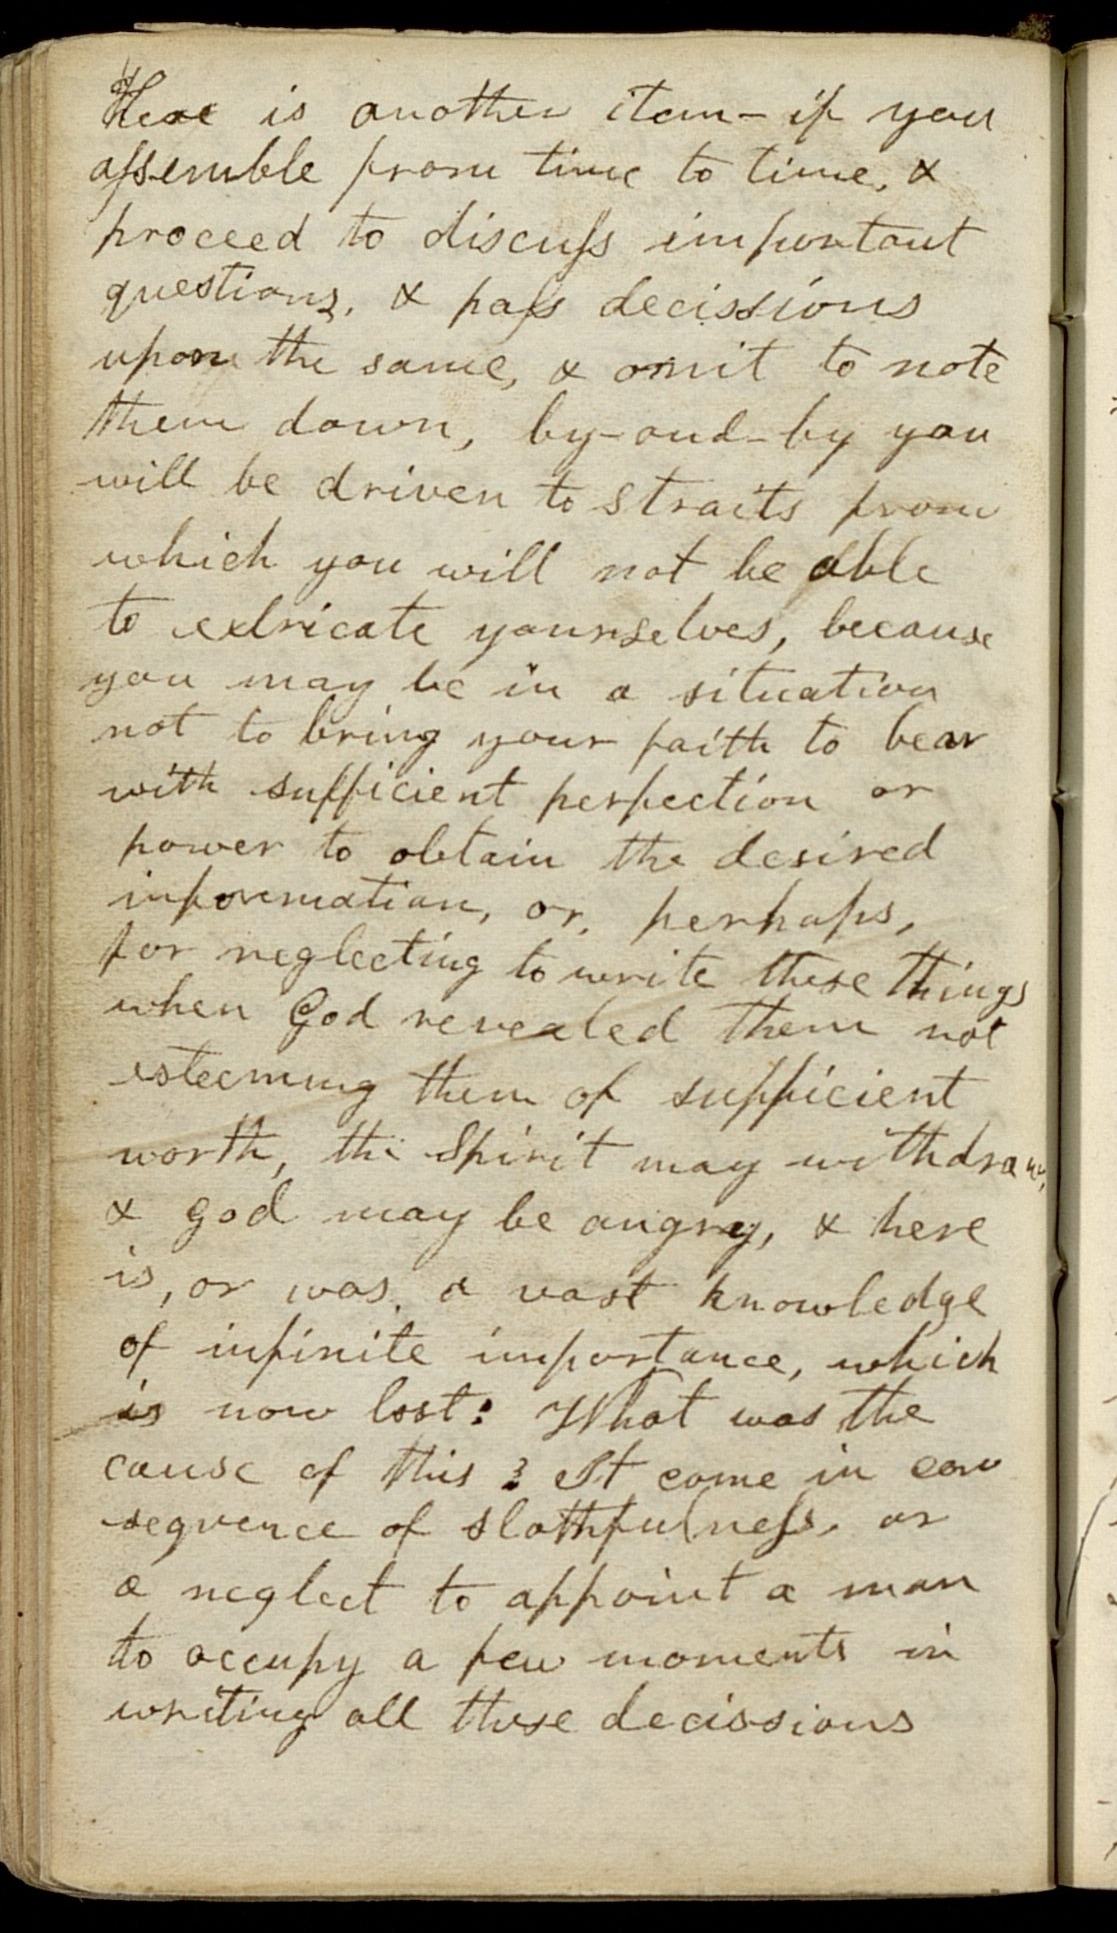 Here is another item— if you
assemble from time to time, &
proceed to discuss important
questions, & pass decissions
upon the same, & omit to note
them down, by-and-by you
will be driven to straits from
which you will not be able
to extricate yourselves, because
you may be in a situation
not to bring your faith to bear
with sufficient perfection or
power to obtain the desired
information, or, perhaps,
for neglecting to write these things
when God revealed them not
esteeming them of sufficient
worth, the Spirit may withdraw,
& god may be angry, & here
is, or was, a vast knowledge
of infinite importance, which
is now lost: What was the
cause of this? It come in con
sequence of slothfulness, or
a neglect to appoint a man
to occupy a few moments in
writing all these decissions